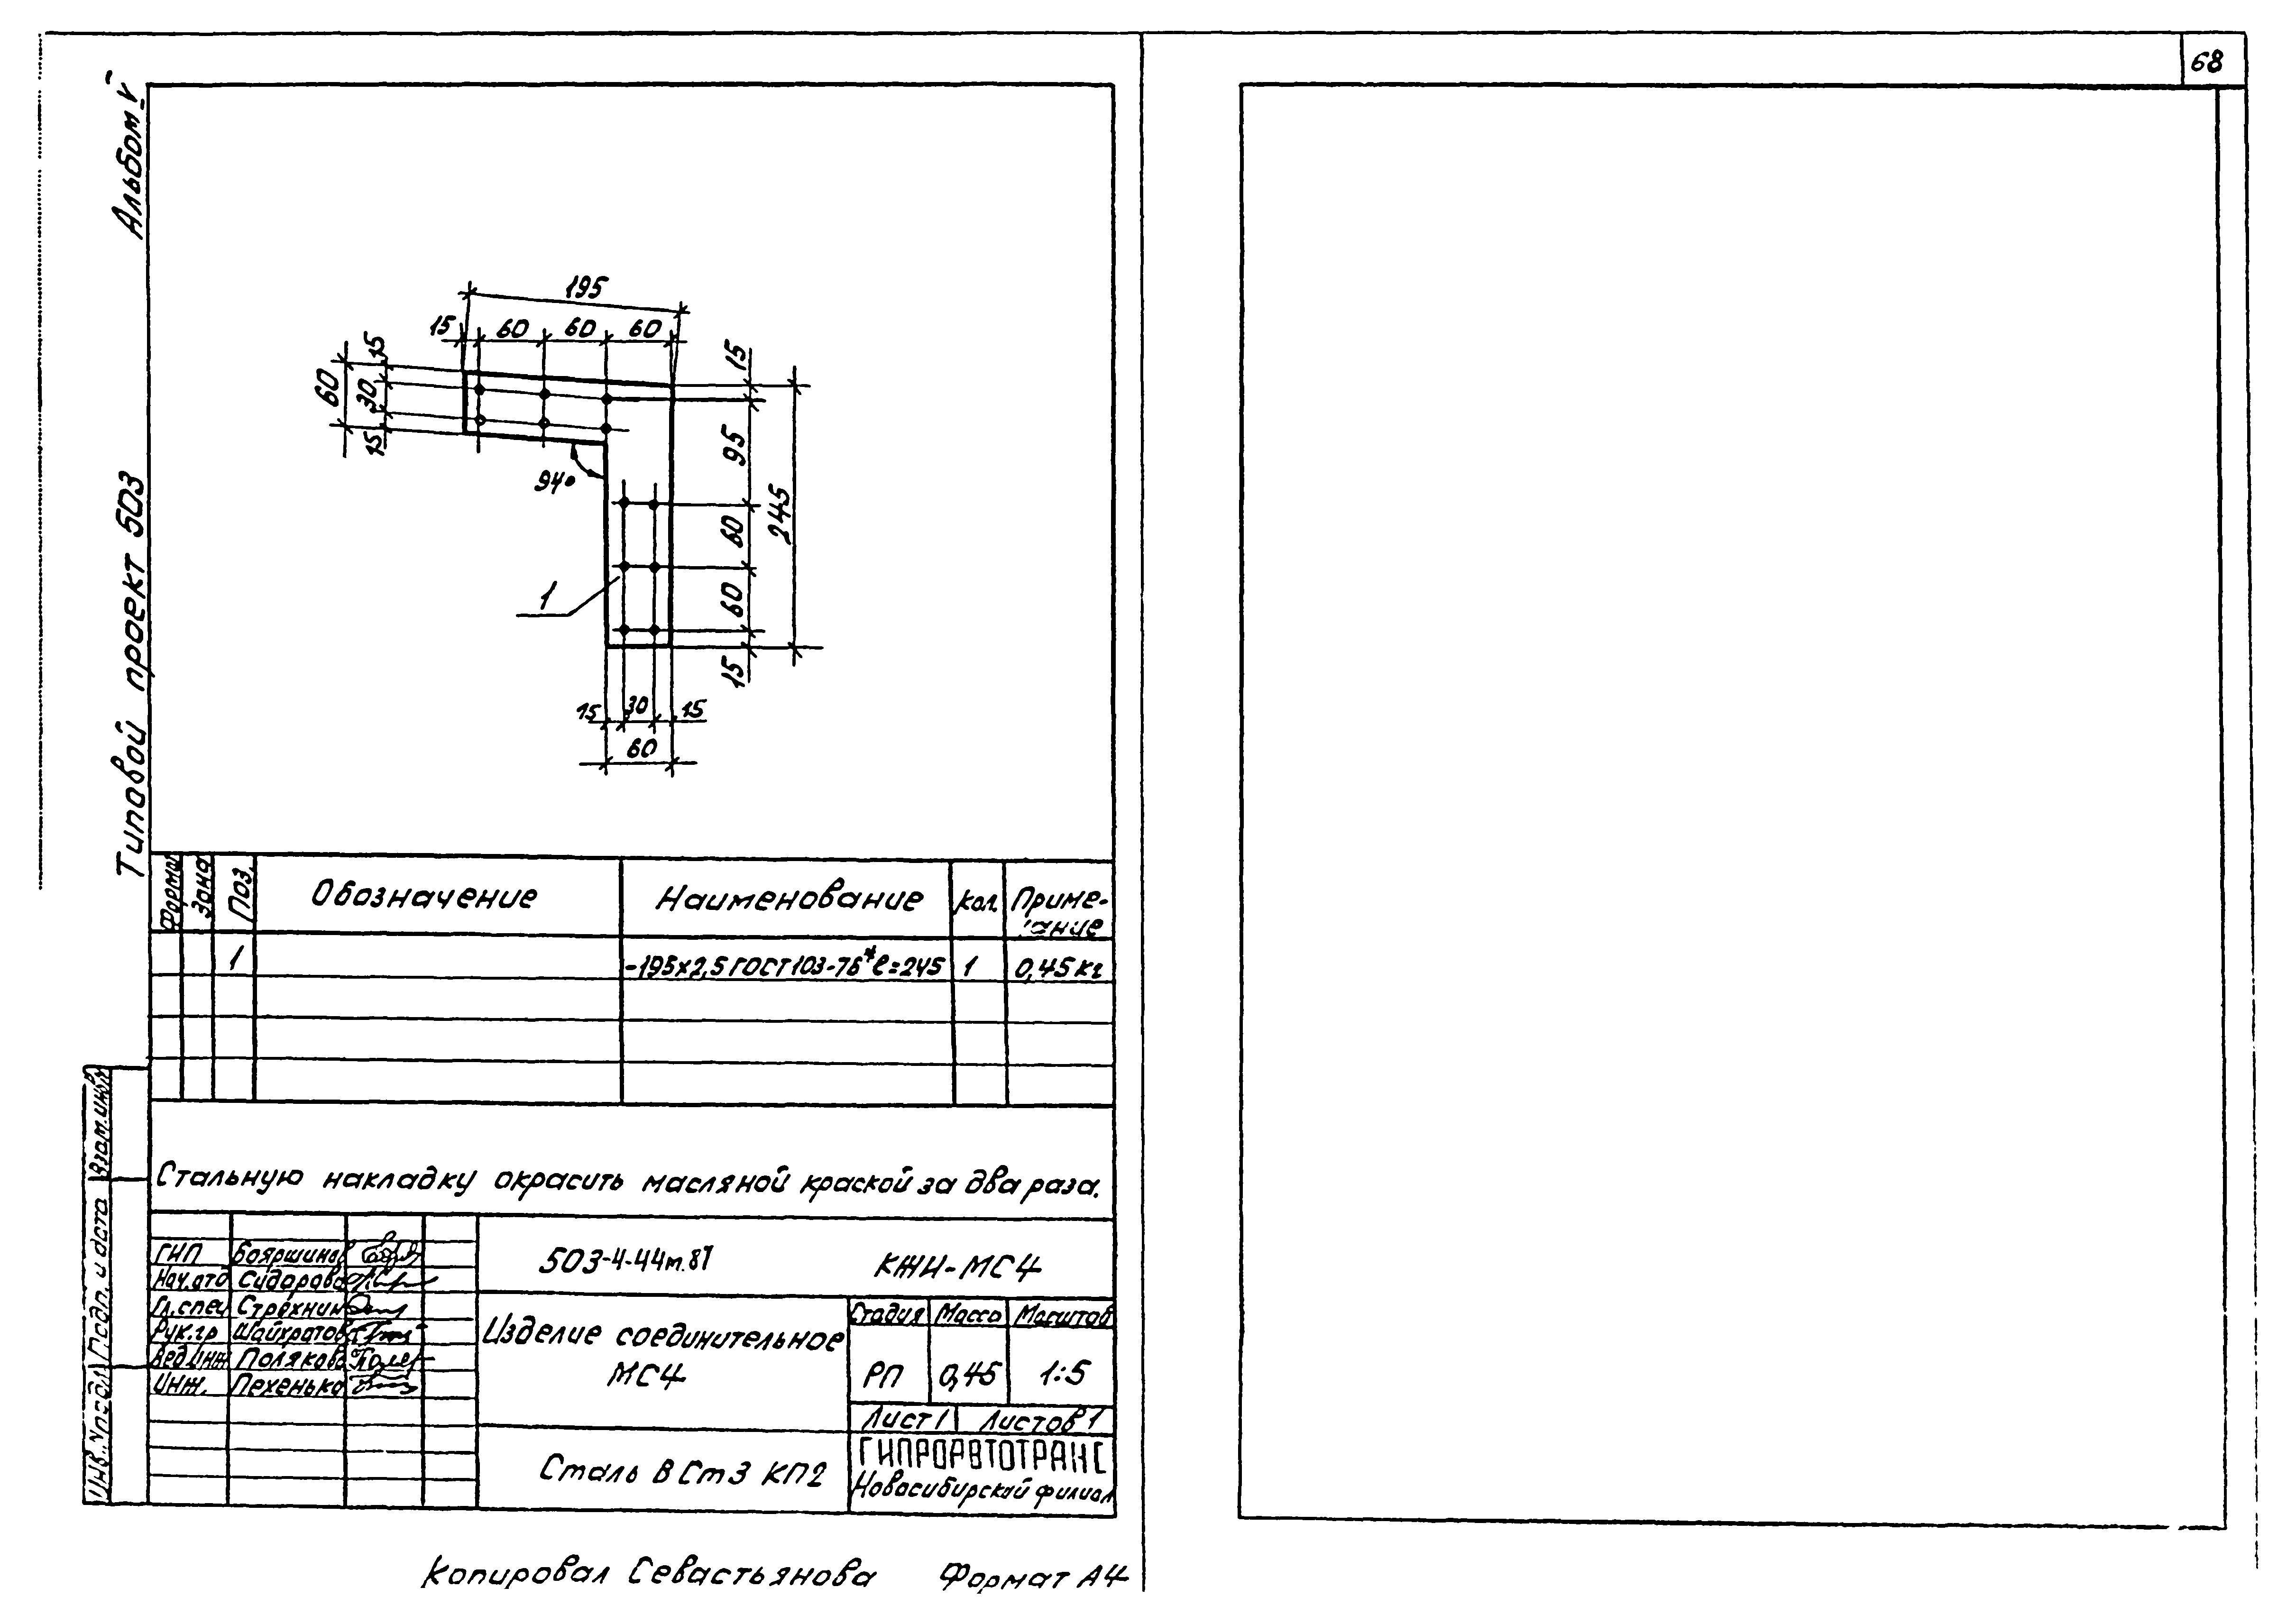 68
Альбом V
Типовой проект 503
195
15 60 60 60
15
30
15
60
15
95
60
60
15
245
94°
1
15 30 15
60
Формат Зона Поз. Обозначение Наименование Кол. Примечание
1 -195х2,5 ГОСТ 103-76* ℓ=245 1 0,45 кг
Стальную накладку окрасить масляной краской за два раза.
ГИП Бояршинов
Нач.отд Сидорова
Гл.спец Страхнин
Рук.гр Шайхратов
Вед.инж Полякова
Инж. Пехенько
503-4-44м.87 КЖИ-МС4
Изделие соединительное
МС4
Стадия Масса Масштаб
РП 0,45 1:5
Лист 1 Листов 1
Сталь ВСт3 КП2
ГИПРОАВТОТРАНС
Новосибирский филиал
Инв.№подл Подп. и дата Взам.инв.№
Копировал Севастьянова Формат А4